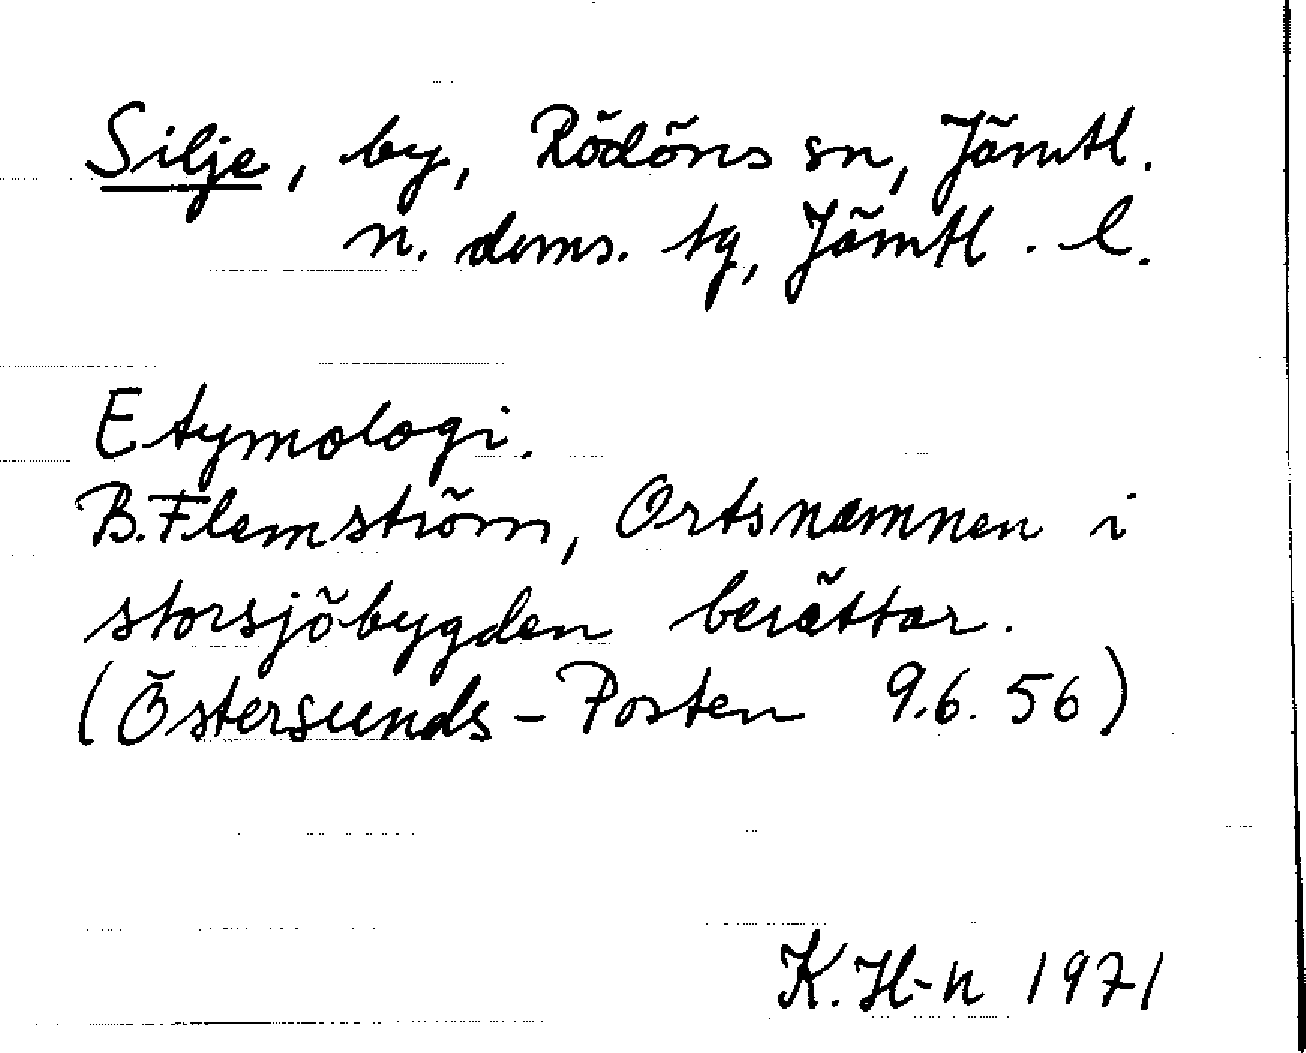 Silje, by, Rödöns sn, Jämtl.
n. doms. tg, Jämtl. l.
Etymologi.
B. Flemström, Ortsnamnen i
storsjöbygden berättar.
(Östersunds-Posten 9.6.56)
K. H-n 1971